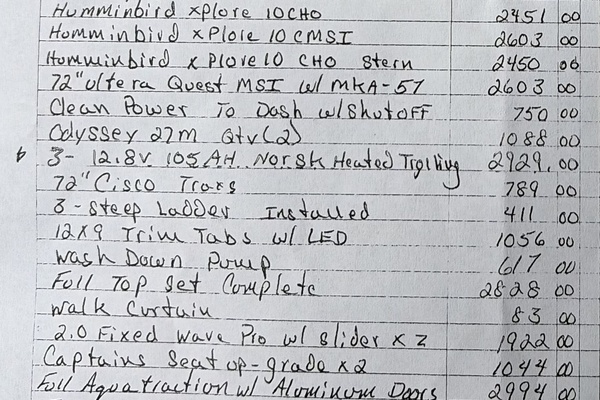 Humminbird xPlore 10CHO 2451 00
Humminbird xPlore 10 CMSI 2603 00
Humminbird xPlore 10 CHO Stern 2450 00
72" ultera Quest MSI w/ MKA-57 2603 00
Clean Power To Dash w/Shutoff 750 00
Odyssey 27m Qty(2) 1088 00
3- 12.8V 105AH Norsk Heated Troling 2929. 00
72" Cisco Tracs 789 00
3-Steep Ladder Installed 411 00
12X9 Trim Tabs w/ LED 1056 00
Wash Down Pump 617 00
Full Top Set Complete 2828 00
Walk Curtain 83 00
2.0 Fixed Wave Pro w/ slider x 2 1922 00
Captains Seat up-grade x2 1044 00
Full Aquatraction w/ Aluminum Doors 2994 00